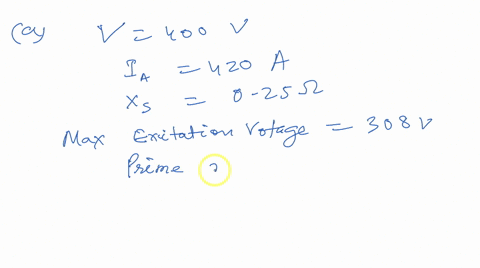 (a) V = 400 V
I_A = 420 A
X_S = 0-25 Ω
Max Exitation Votage = 308 V
Prime